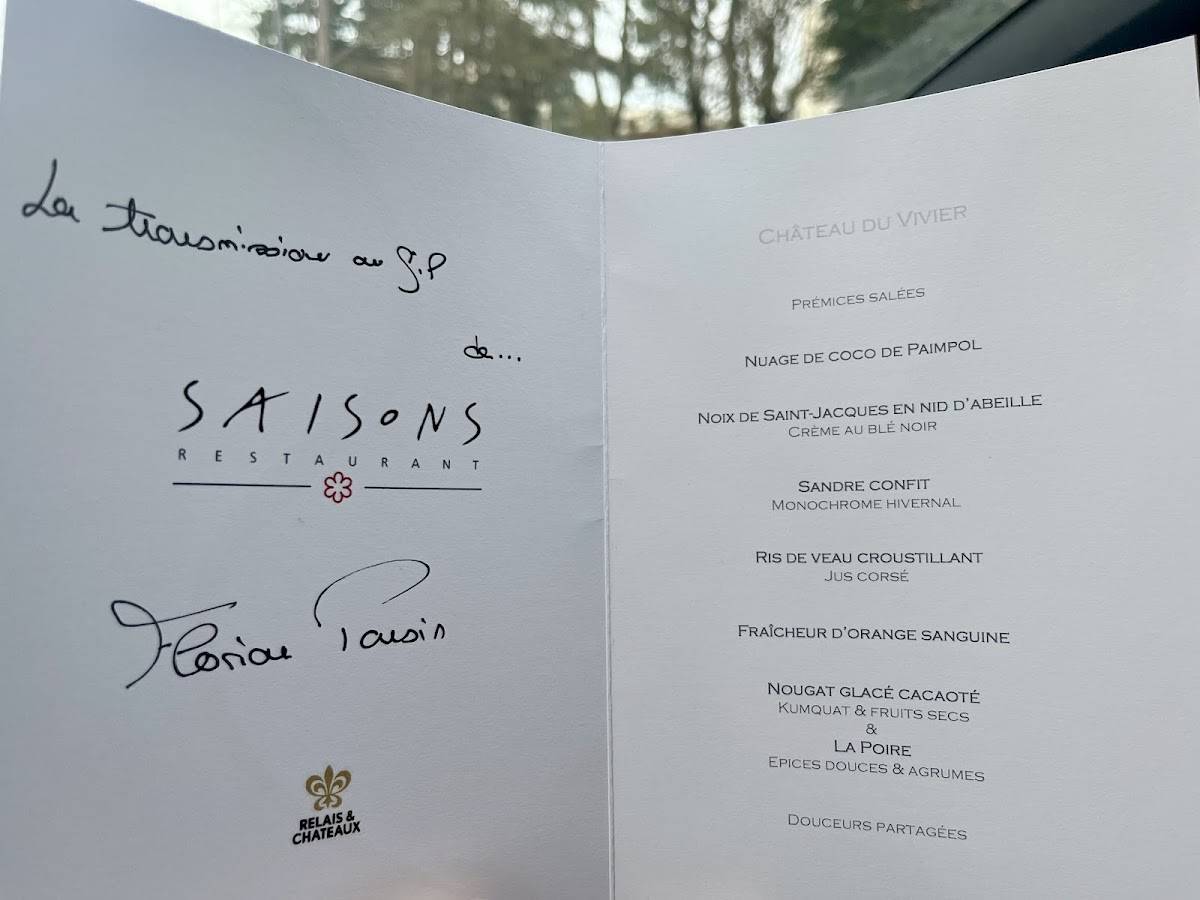 La transmission au G.P
de...
SAISONS
RESTAURANT
Florian
RELAIS &
CHATEAUX
CHÂTEAU DU VIVIER
PRÉMICES SALÉES
NUAGE DE COCO DE PAIMPOL
NOIX DE SAINT-JACQUES EN NID D'ABEILLE
CRÈME AU BLÉ NOIR
SANDRE CONFIT
MONOCHROME HIVERNAL
RIS DE VEAU CROUSTILLANT
JUS CORSÉ
FRAÎCHEUR D'ORANGE SANGUINE
NOUGAT GLACÉ CACAOTÉ
KUMQUAT & FRUITS SECS
&
LA POIRE
EPICES DOUCES & AGRUMES
DOUCEURS PARTAGÉES